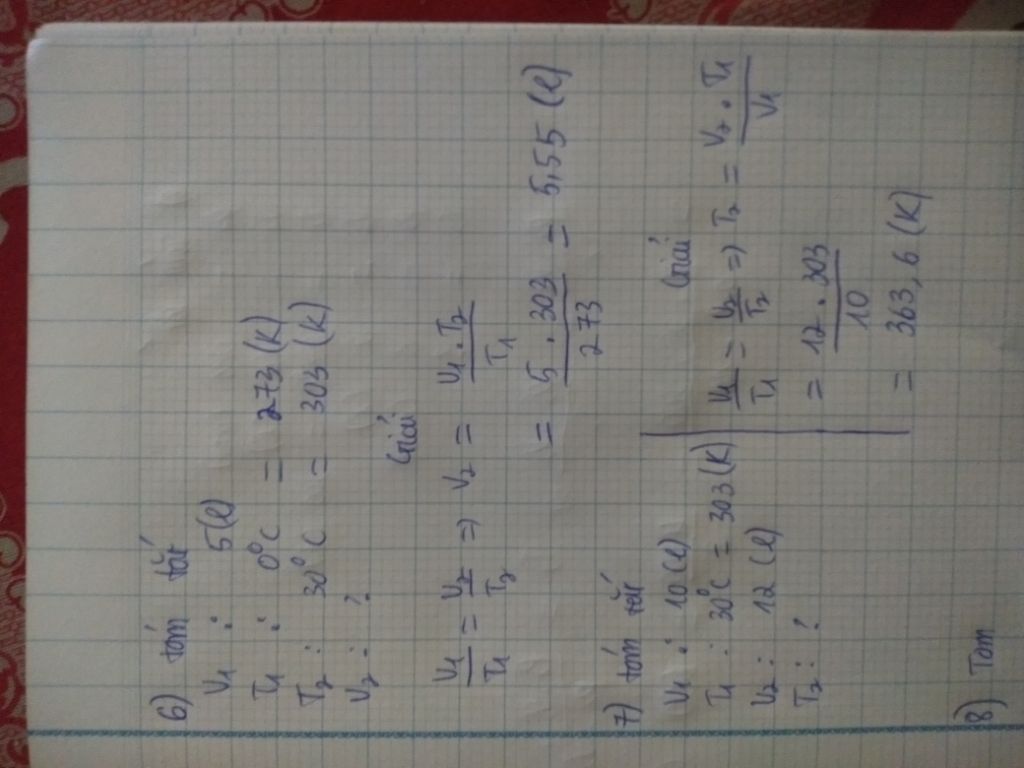 6) tóm tắt
V1 : 5(l)
T1 : 0°C = 273 (K)
T2 : 30°C = 303 (K)
V2 : ?
Giải
V1/T1 = V2/T2 => V2 = V1.T2/T1
= 5 . 303/273 = 5,55 (l)
7) tóm tắt
V1 : 10 (l)
T1 : 30°C = 303 (K)
V2 : 12 (l)
T2 : ?
Giải
V1/T1 = V2/T2 => T2 = V2 . T1/V1
= 12 . 303/10
= 363,6 (K)
8) Tóm